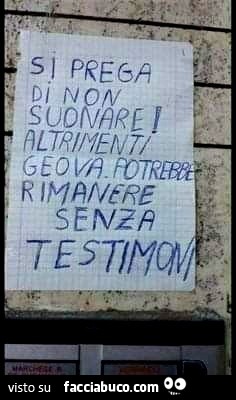 SI PREGA
DI NON
SUONARE!
ALTRIMENTI
GEOVA. POTREBBE
RIMANERE
SENZA
TESTIMONI
MARCHESE A
visto su facciabuco.com